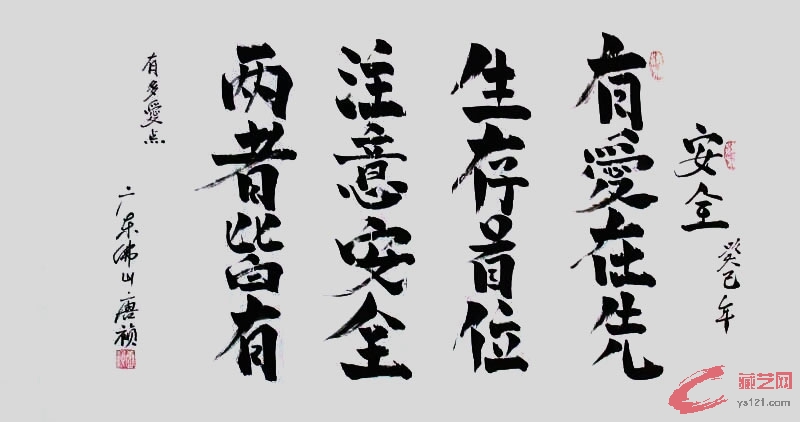 安全
癸巳年
有愛在先
生存首位
注意安全
两者皆有
有多愛点
广东佛山唐祯
藏艺网
ys121.com